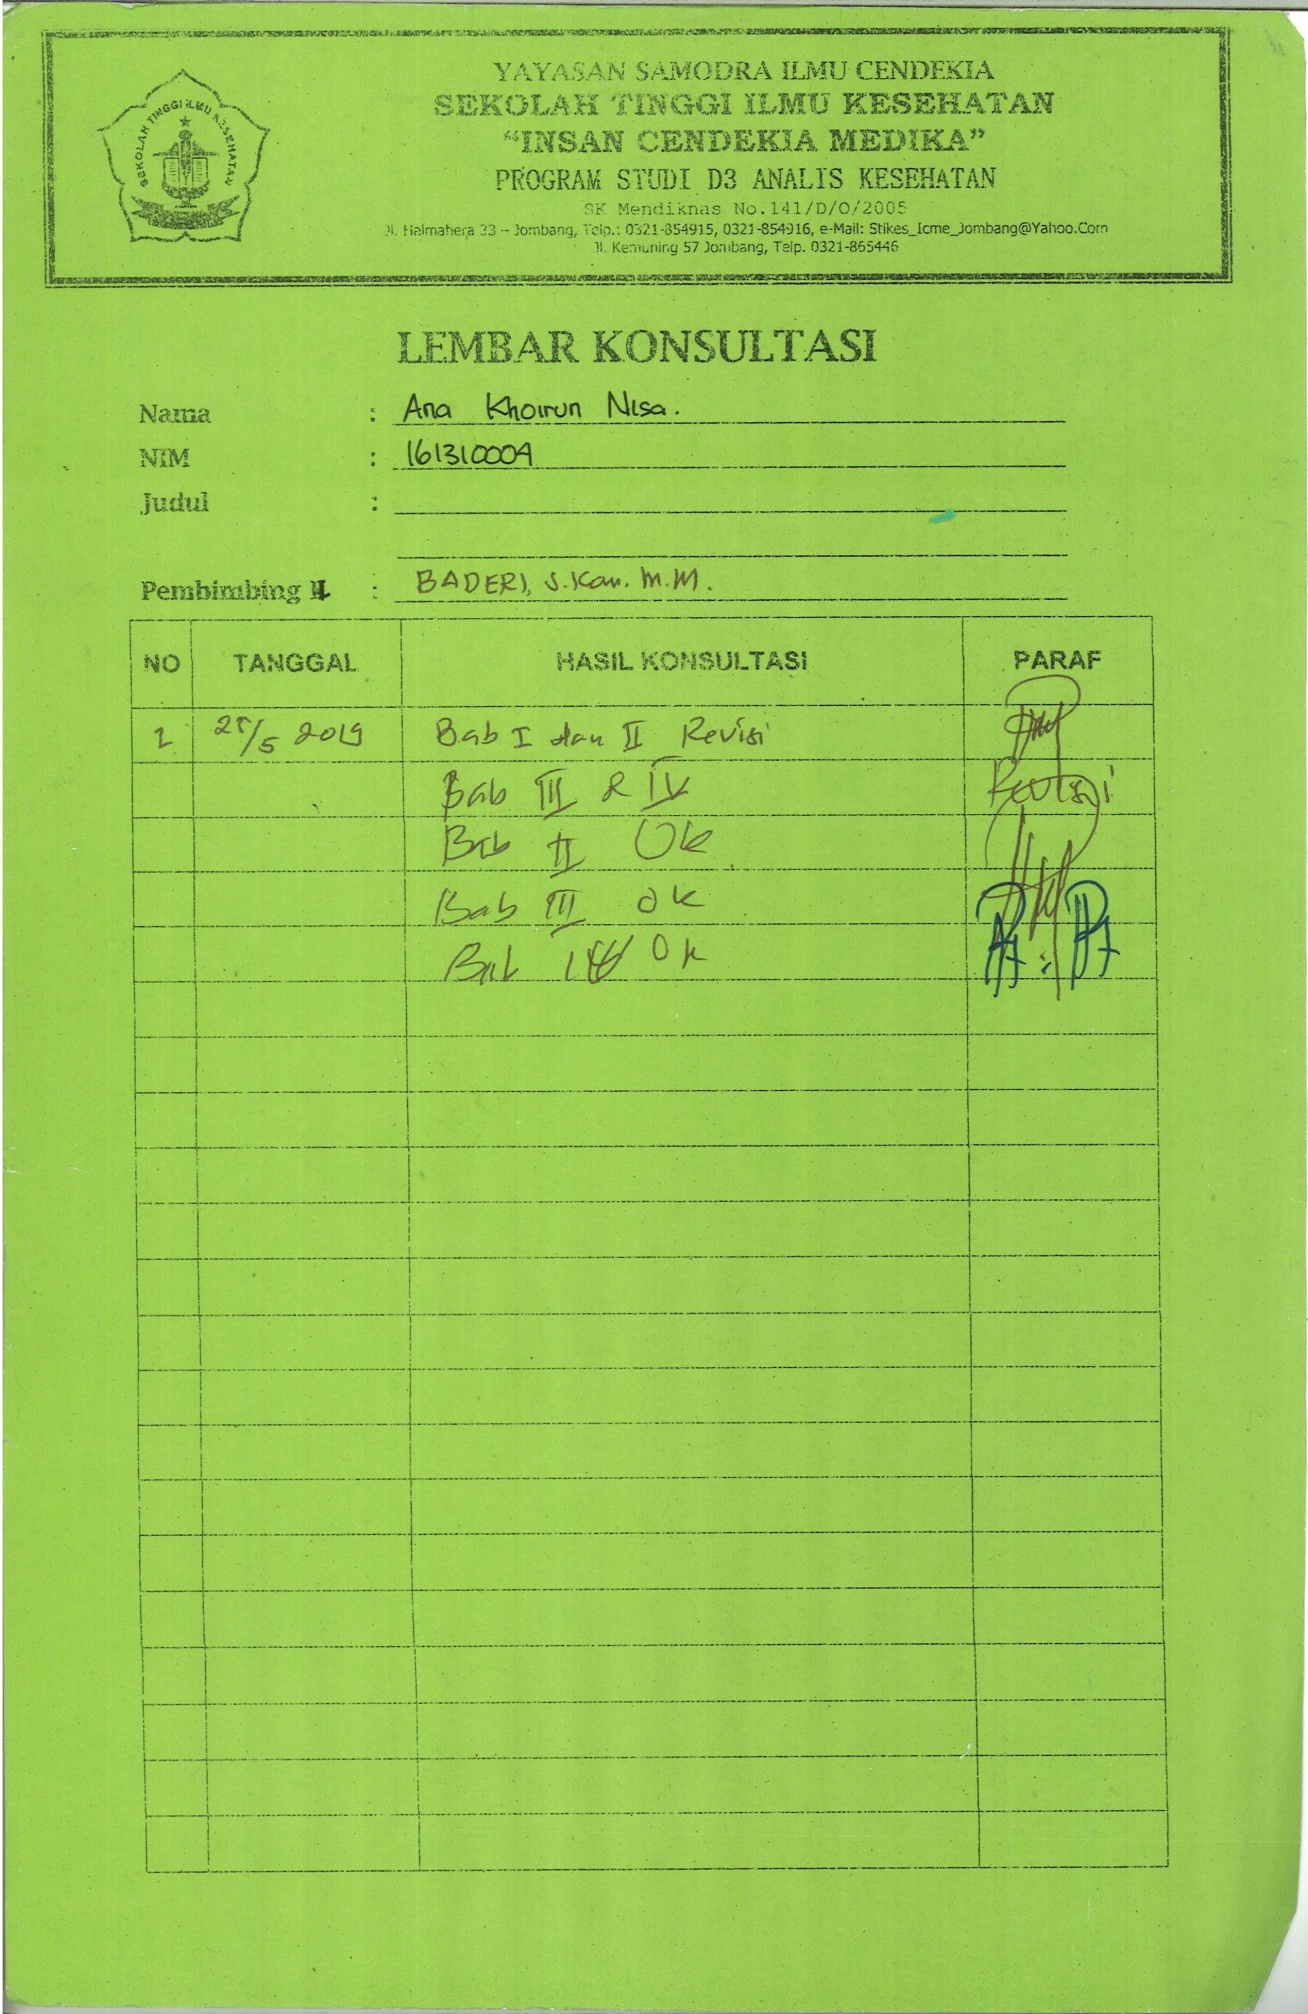 SEKOLAH TINGGI ILMU KESEHATAN
YAYASAN SAMODRA ILMU CENDEKIA
SEKOLAH TINGGI ILMU KESEHATAN
“INSAN CENDEKIA MEDIKA”
PROGRAM STUDI D3 ANALIS KESEHATAN
SK Mendiknas No.141/D/O/2005
Jl. Halmahera 33 – Jombang, Telp.: 0321-854915, 0321-854916, e-Mail: Stikes_Icme_Jombang@Yahoo.Com
Jl. Kemuning 57 Jombang, Telp. 0321-865446
LEMBAR KONSULTASI
Nama : Ana Khoirun Nisa.
NIM : 161310004
Judul :
Pembimbing II : BADERI, S.Kom. M.M.
NO TANGGAL HASIL KONSULTASI PARAF
1 /5 2019 Bab I dan II Revisi
Bab III & IV Revisi
Bab II Ok
Bab III Ok
Bab Ok